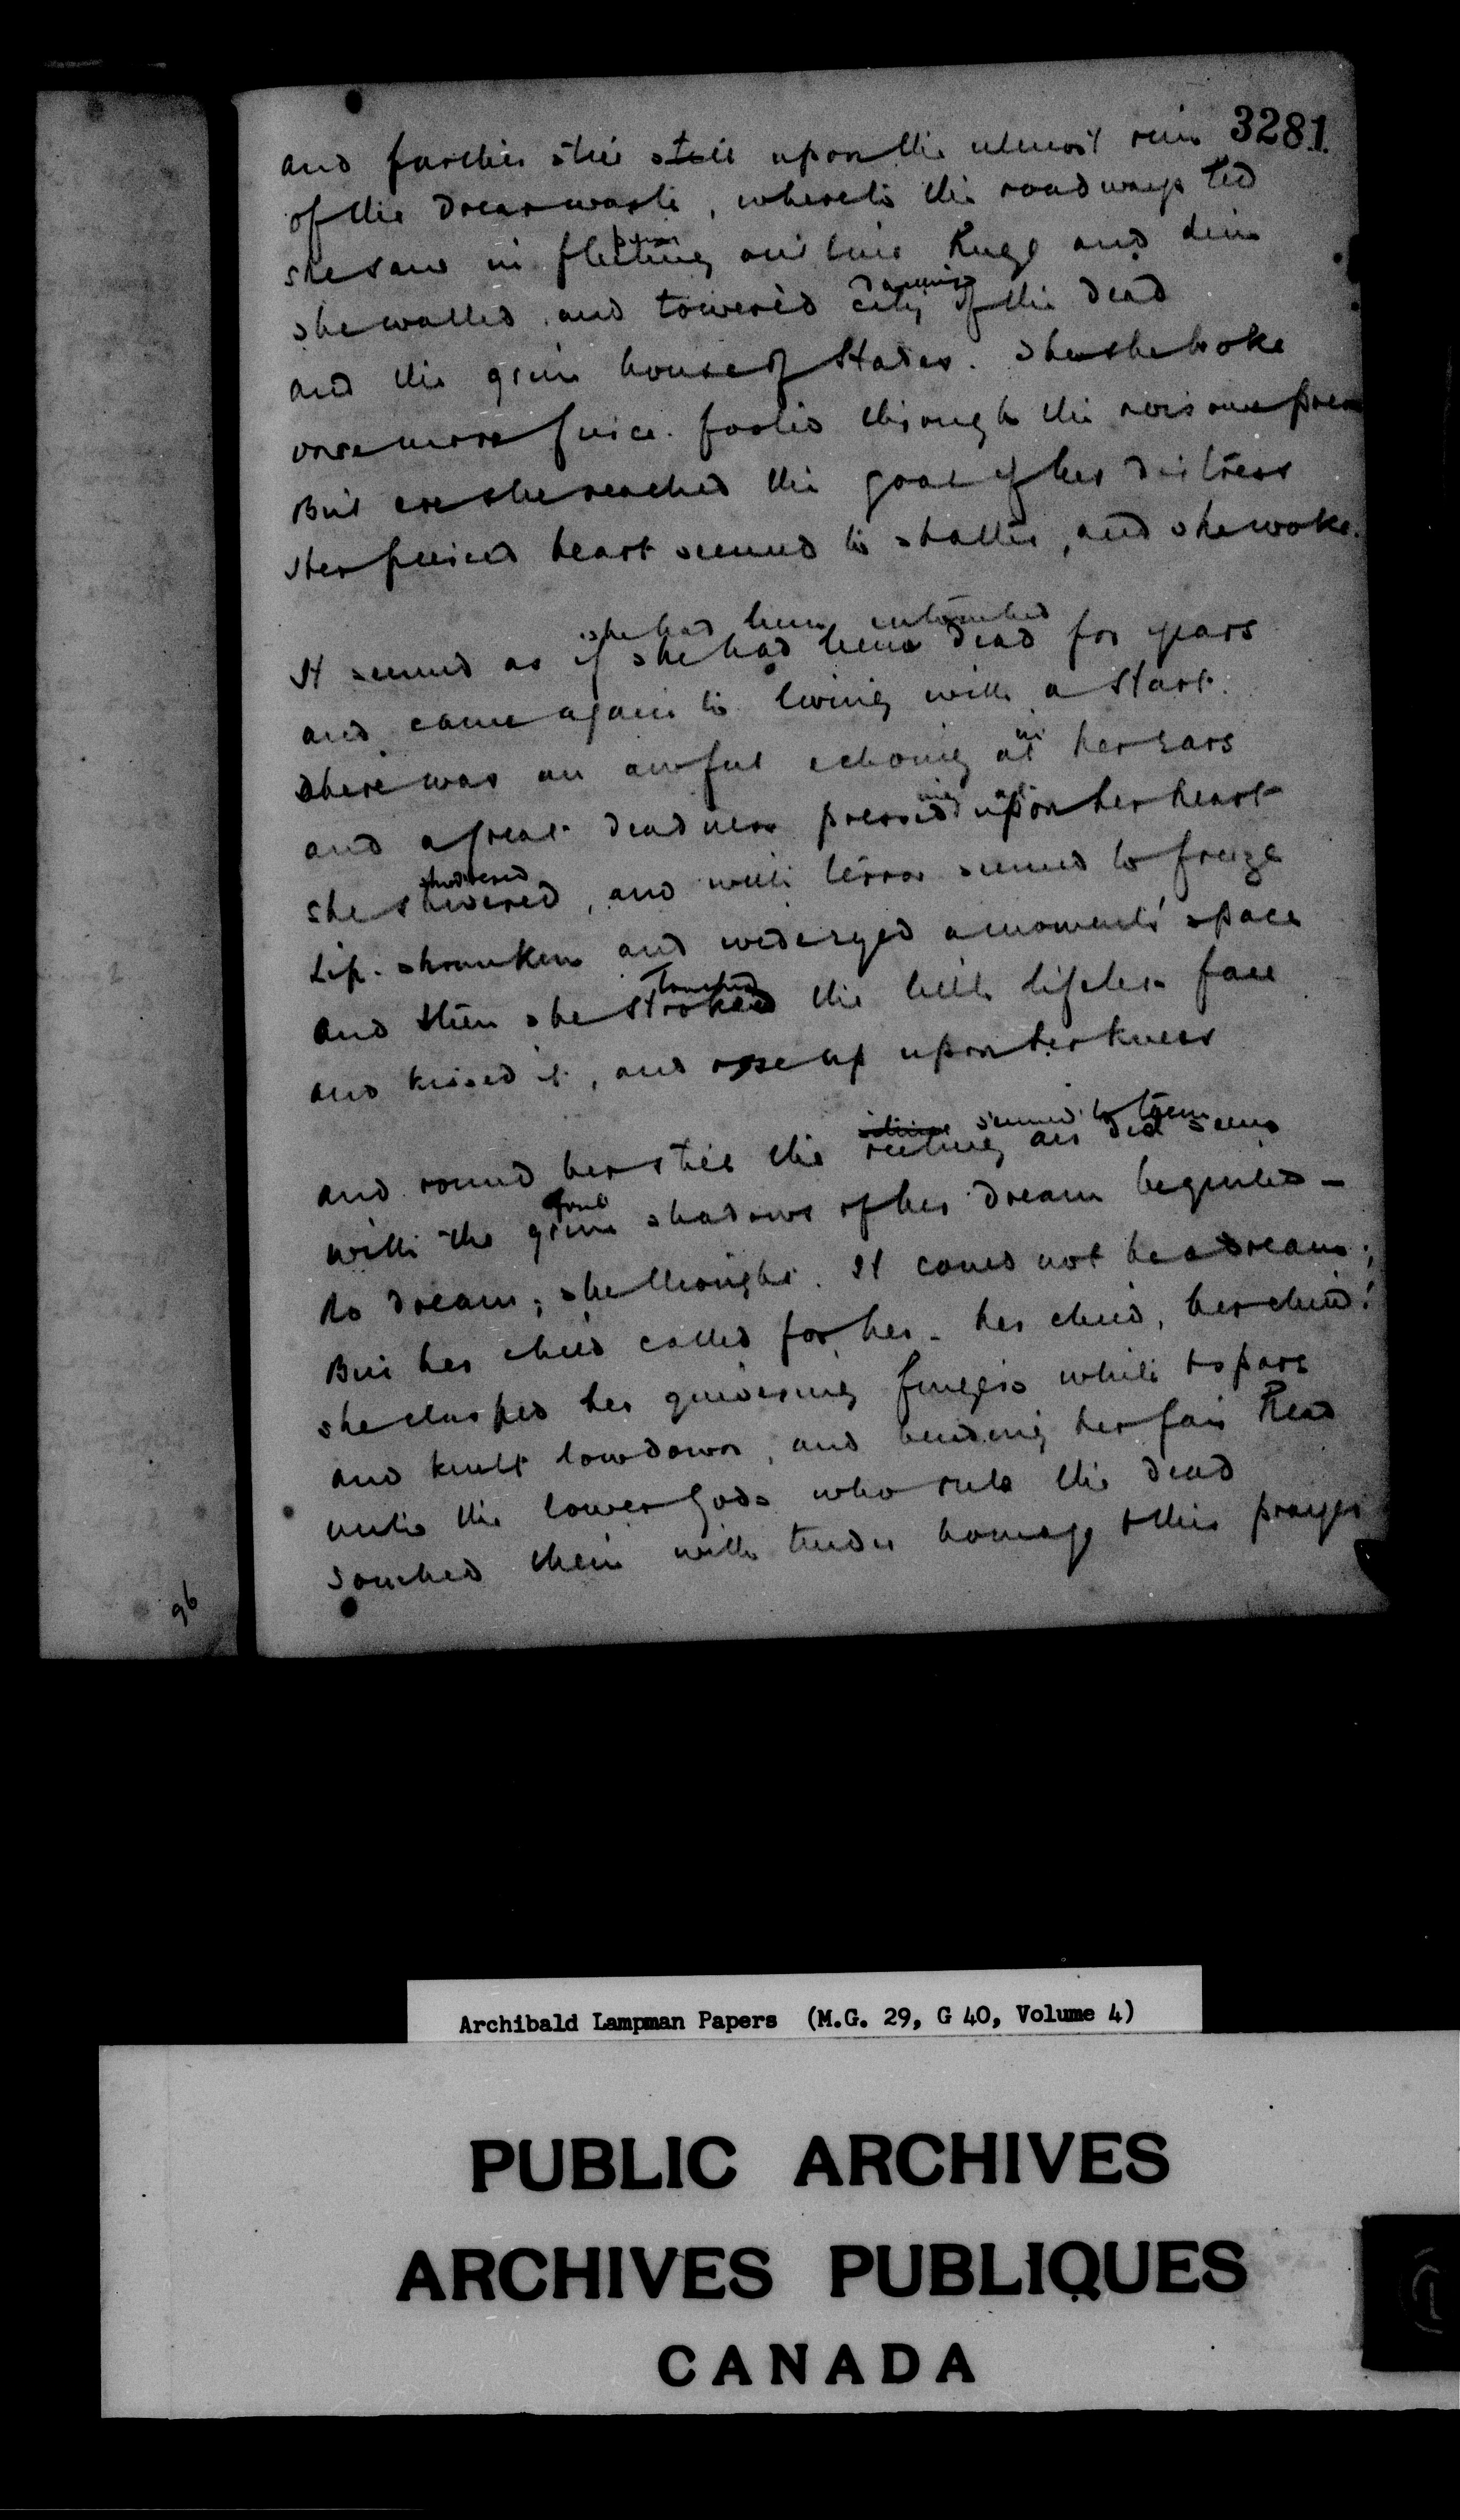 3281
And farther still still upon the utmost rim
of the drear waste, whereto the roadways led
she saw in fleeting outline huge and dim
The walled and towered city of the dead
and the grim house of Hades. Then she broke
once more fierce footed through the noisome press
But ere she reached the goal of her distress
Her pierced heart seemed to shatter, and she woke.
she had been entombed
It seemed as if she had been dead for years
and came again to living with a start.
in
There was an awful echoing at her ears
and a great deadness pressed upon her heart
shuddered
She shivered, and with terror seemed to freeze
Lip-shrunken and wide eyed a moment's space
touched
and then she stroked the little lifeless face
and kissed it, and rose up upon her knees
seemed to teem
and round her still the air did seem
foul
with the grim shadows of her dream beguiled -
No dream, she thought. It could not be a dream;
But her child called for her - her child, her child!
She clasped her quivering fingers white & spare
and knelt low down, and bending her fair head
unto the lower gods who rule the dead
Touched them with tender homage & this prayer
96
Archibald Lampman Papers (M.G. 29, G 40, Volume 4)
PUBLIC ARCHIVES
ARCHIVES PUBLIQUES
CANADA